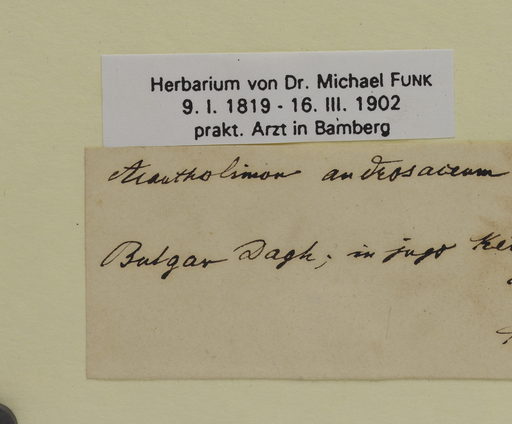 Herbarium von Dr. Michael FUNK
9. I. 1819 - 16. III. 1902
prakt. Arzt in Bamberg
Acantholimon androsaceum
Bulgar Dagh; in jugo